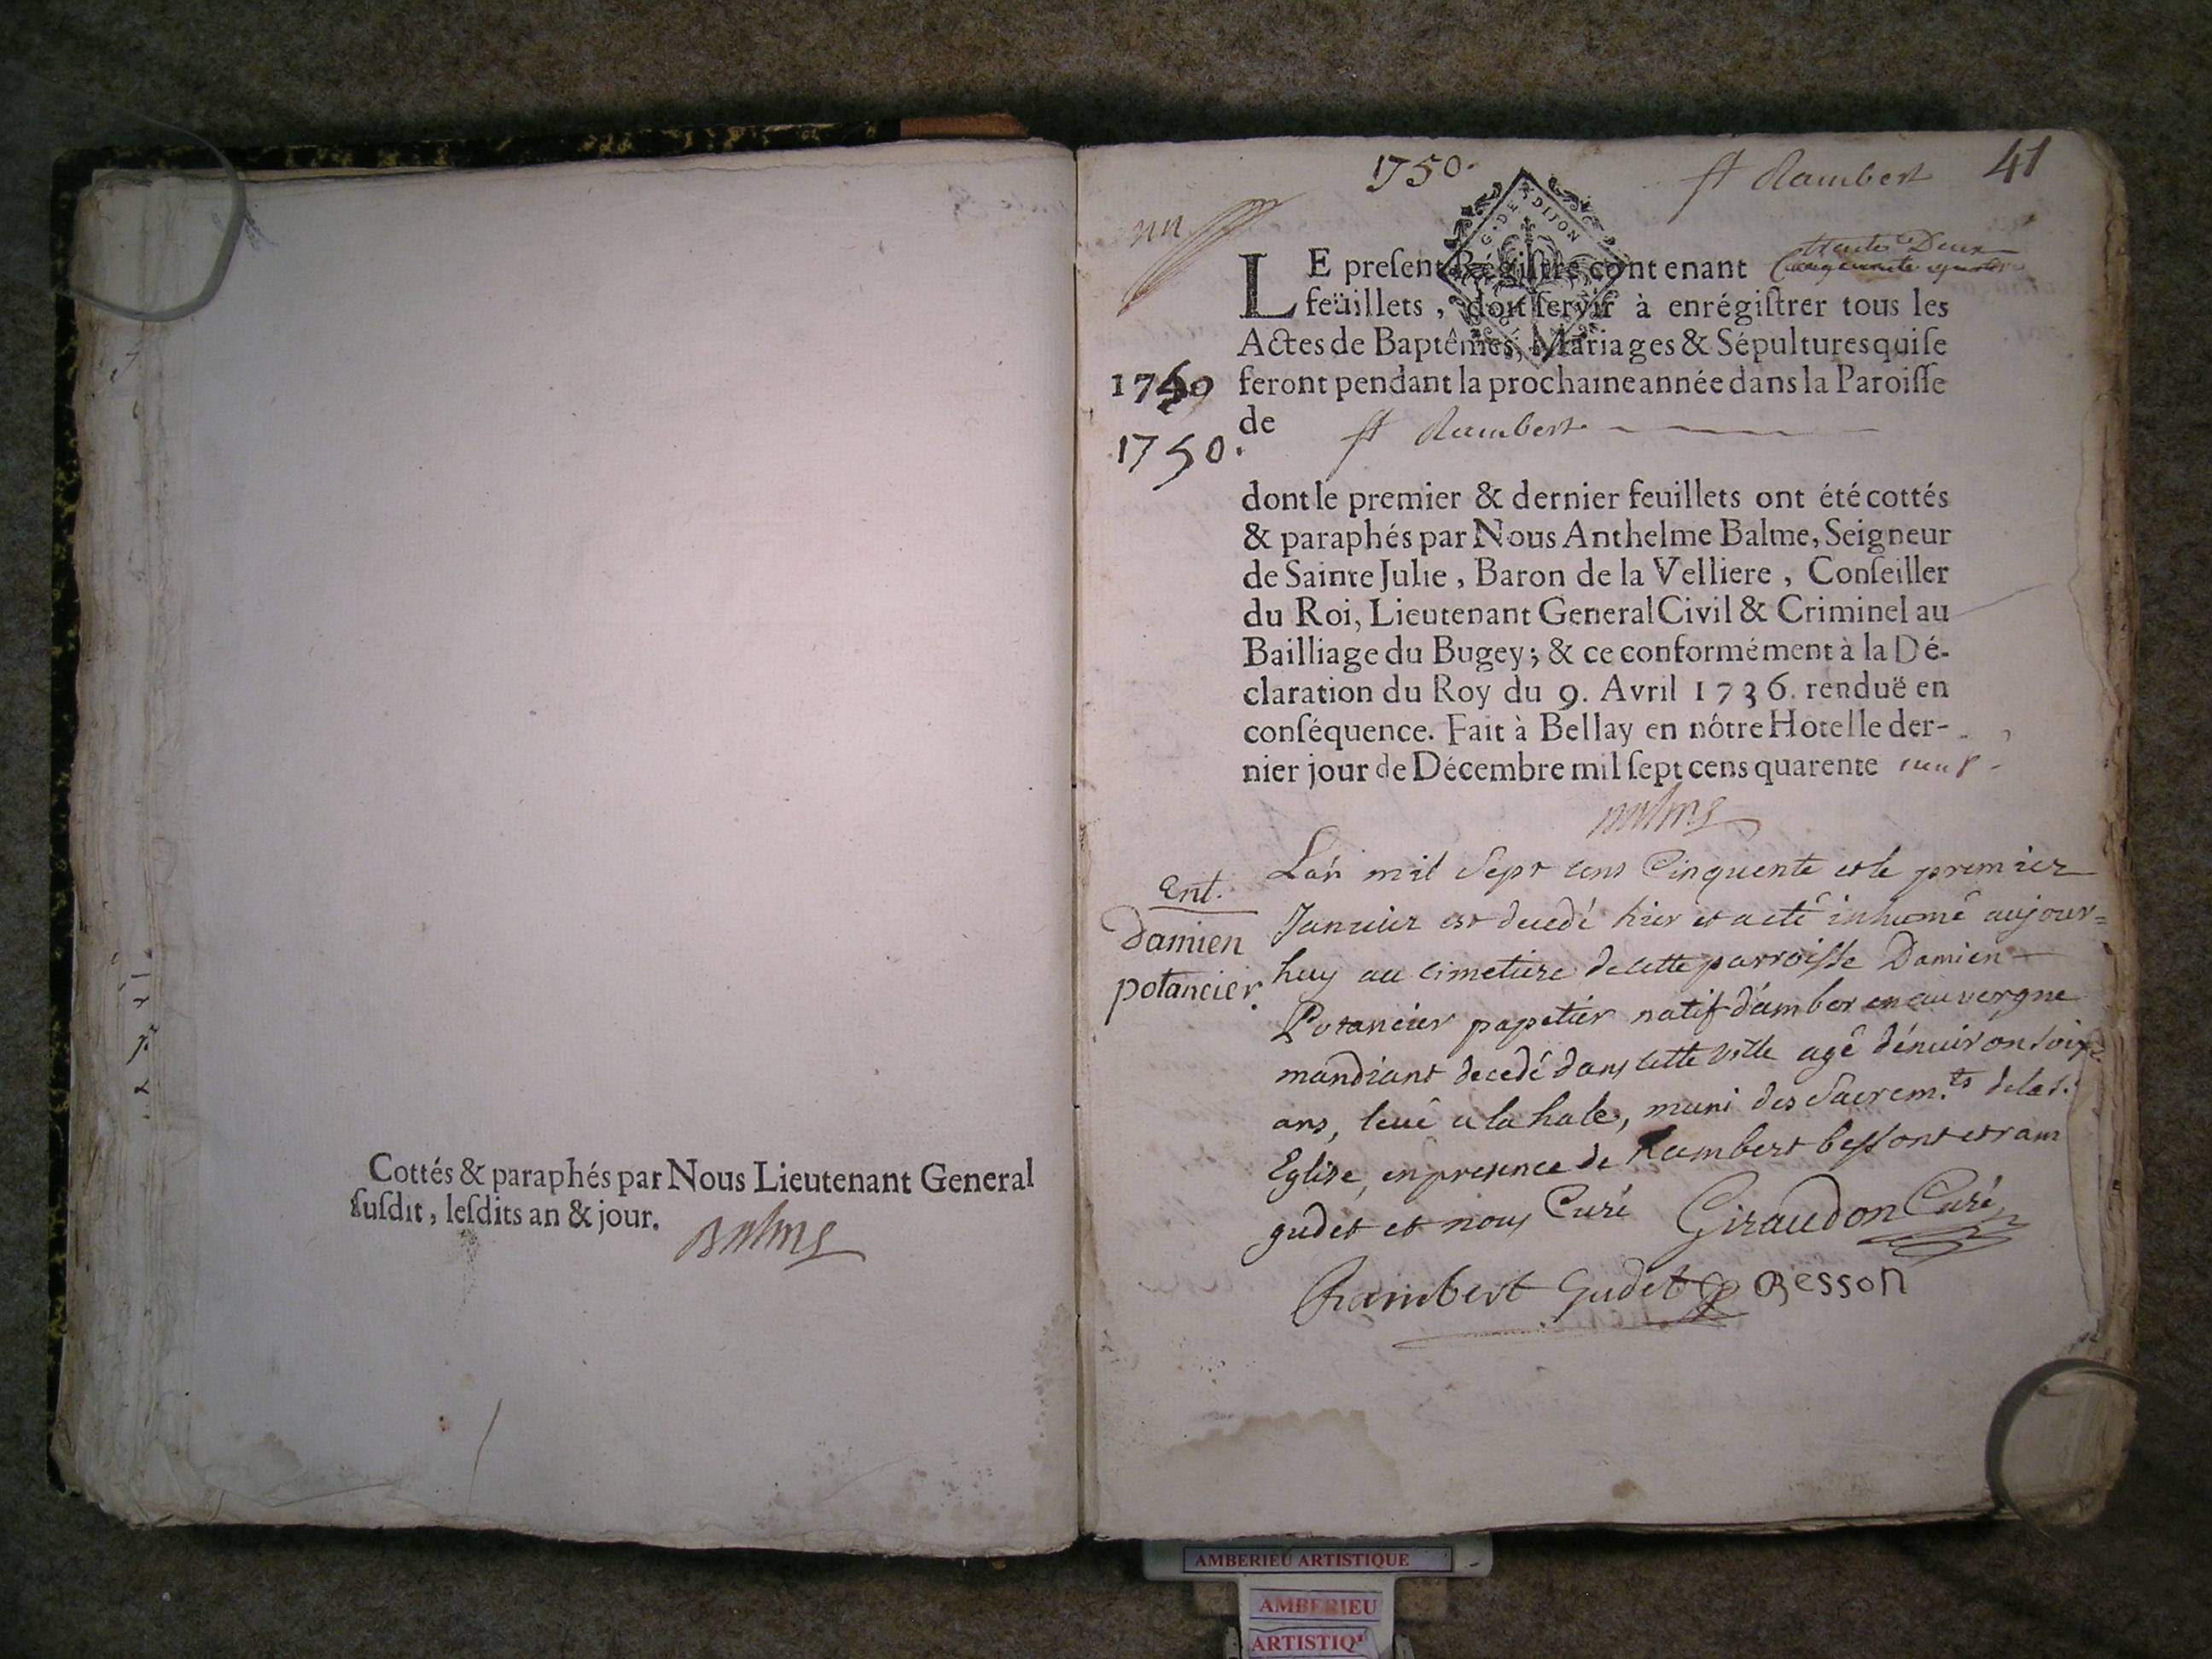 Cottés & paraphés par Nous Lieutenant General
ſuſdit, leſdits an & jour.
Balme
1750.
st Rambert
41
un
G. DE DIJON
LE preſent Régiſtre contenant trente Deux
feüillets, doit ſervir à enrégiſtrer tous les
Actes de Baptêmes, Mariages & Sépultures qui ſe
feront pendant la prochaine année dans la Paroiſſe
de st Rambert
1750.
dont le premier & dernier feuillets ont été cottés
& paraphés par Nous Anthelme Balme, Seigneur
de Sainte Julie, Baron de la Velliere, Conſeiller
du Roi, Lieutenant General Civil & Criminel au
Bailliage du Bugey; & ce conformément à la Dé-
claration du Roy du 9. Avril 1736. renduë en
conſéquence. Fait à Bellay en nôtre Hotel le der-
nier jour de Décembre mil ſept cens quarente neuf
Balme
Ent.
damien
potancier.
L'an mil Sept cens Cinquente et le premier
Januier est decedé hier et a eté inhumé aujour=
huy au cimetiere de cette parroisse Damien
Potancier papetier natif d'ambert en auvergne
mandiant decedé dans cette ville agé d'enuiron soix.
ans, leué a la hale, muni des Sacrem.ts de la s.
Eglise, en presence de Rambert besson et ram
gudet et nous Curé Giraudon Curé
Rambert Gudet Besson
AMBERIEU ARTISTIQUE
AMBERIEU
ARTISTIQ